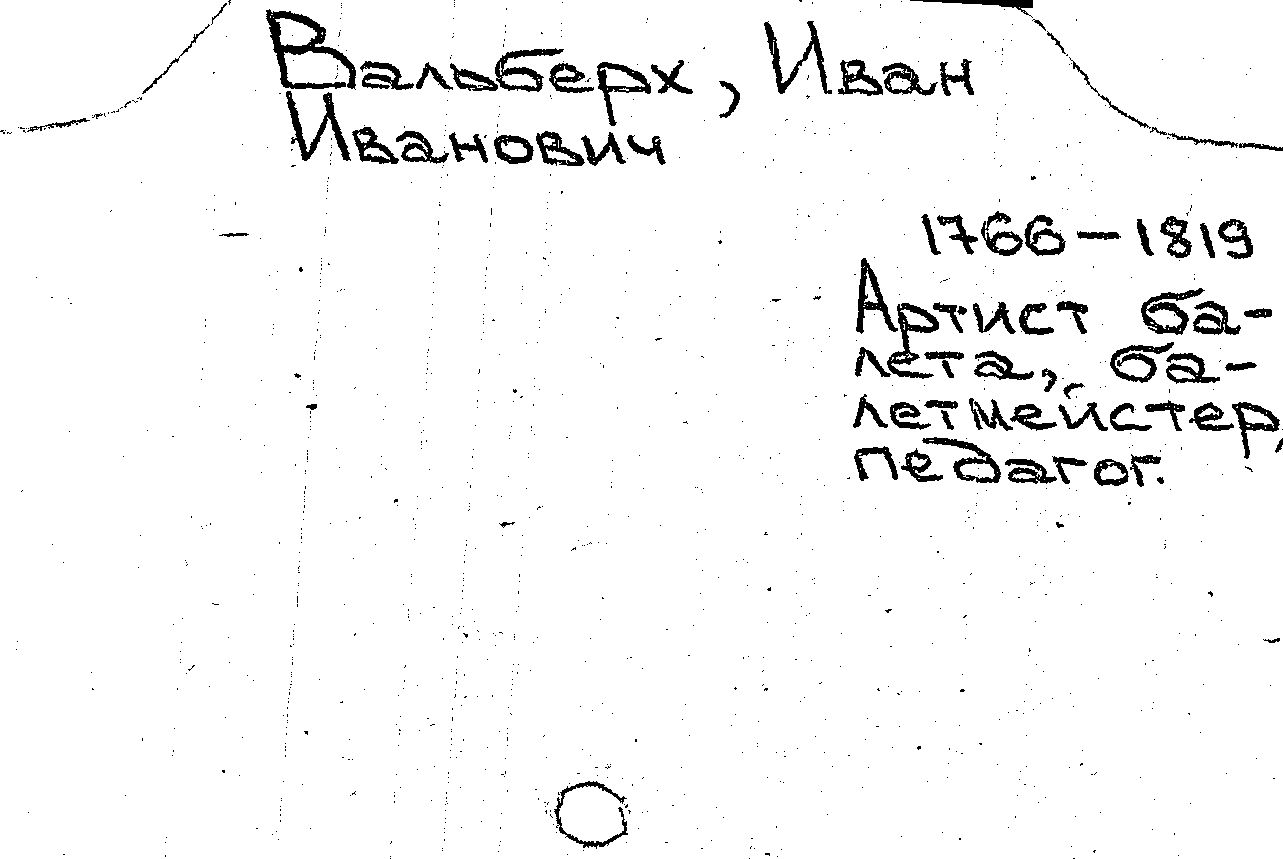 Вальберх, Иван
Иванович
1766–1819
Артист ба-
лета, ба-
летмейстер,
педагог.